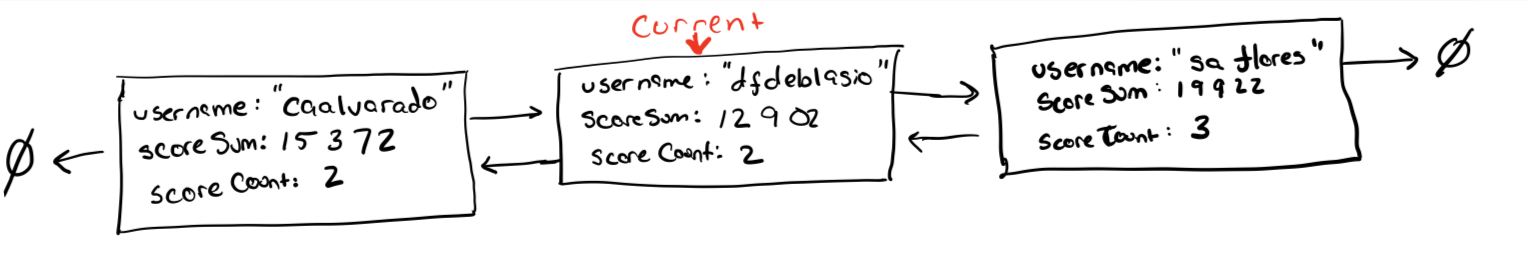 Current
∅
username: "caalvarado"
scoreSum: 15372
score Count: 2
username: "dfdeblasio"
ScoreSum: 12902
Score Count: 2
username: "saflores"
Score Sum: 19922
Score Count: 3
∅